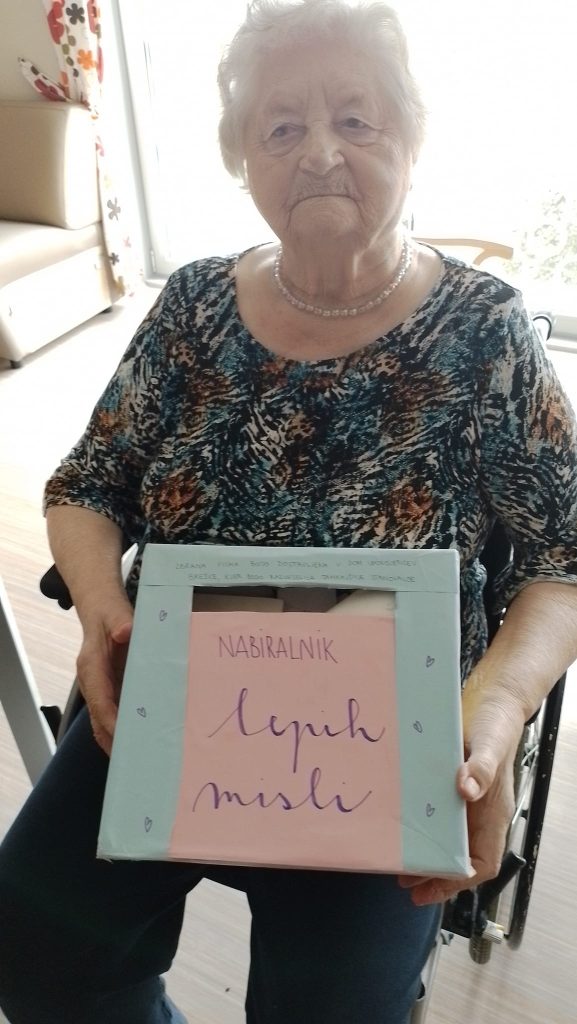 ZBRANA PISMA BODO DOSTAVLJENA V DOM UPOKOJENCEV
BREŽICE, KJER BODO RAZVESELILA TAMKAJŠNJE STANOVALCE
NABIRALNIK
lepih
misli